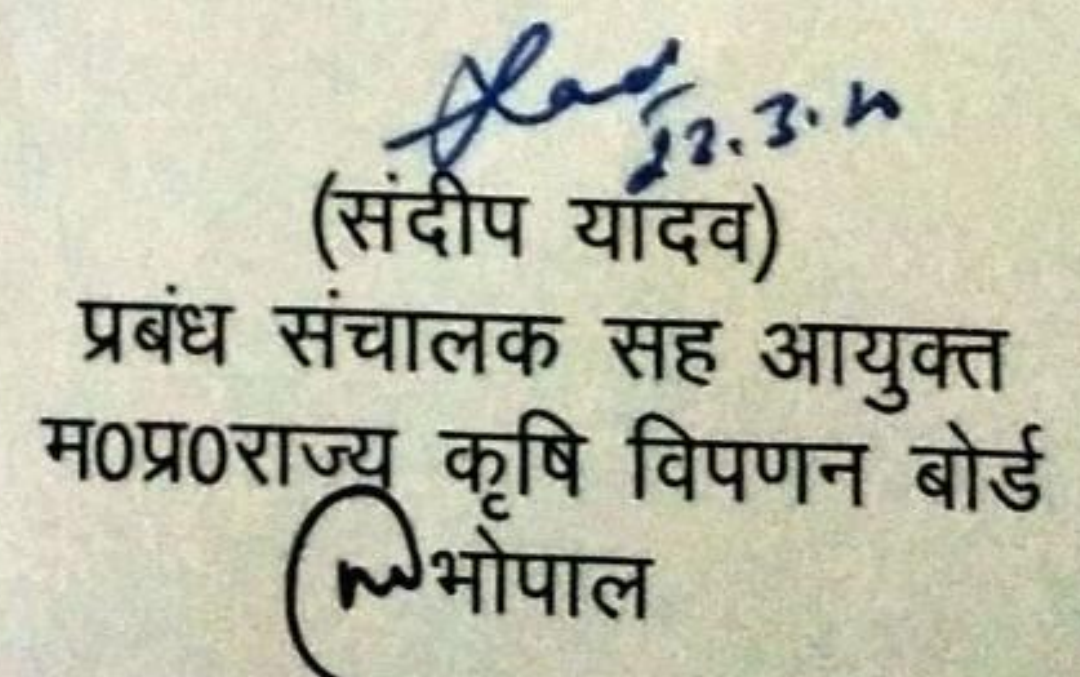 (संदीप यादव)
प्रबंध संचालक सह आयुक्त
म0प्र0राज्य कृषि विपणन बोर्ड
भोपाल